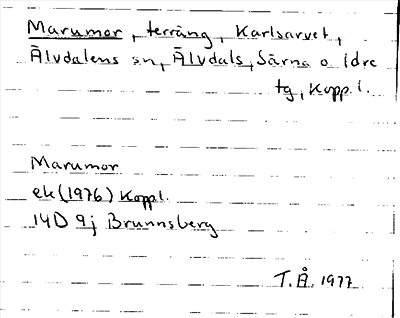 Marumor, terräng, Karlsarvet,
Älvdalens sn, Älvdals, Särna o Idre
tg, Kopp l.
Marumor
ek (1976) Koppl.
14D 9j Brunnsberg
T.Å. 1977